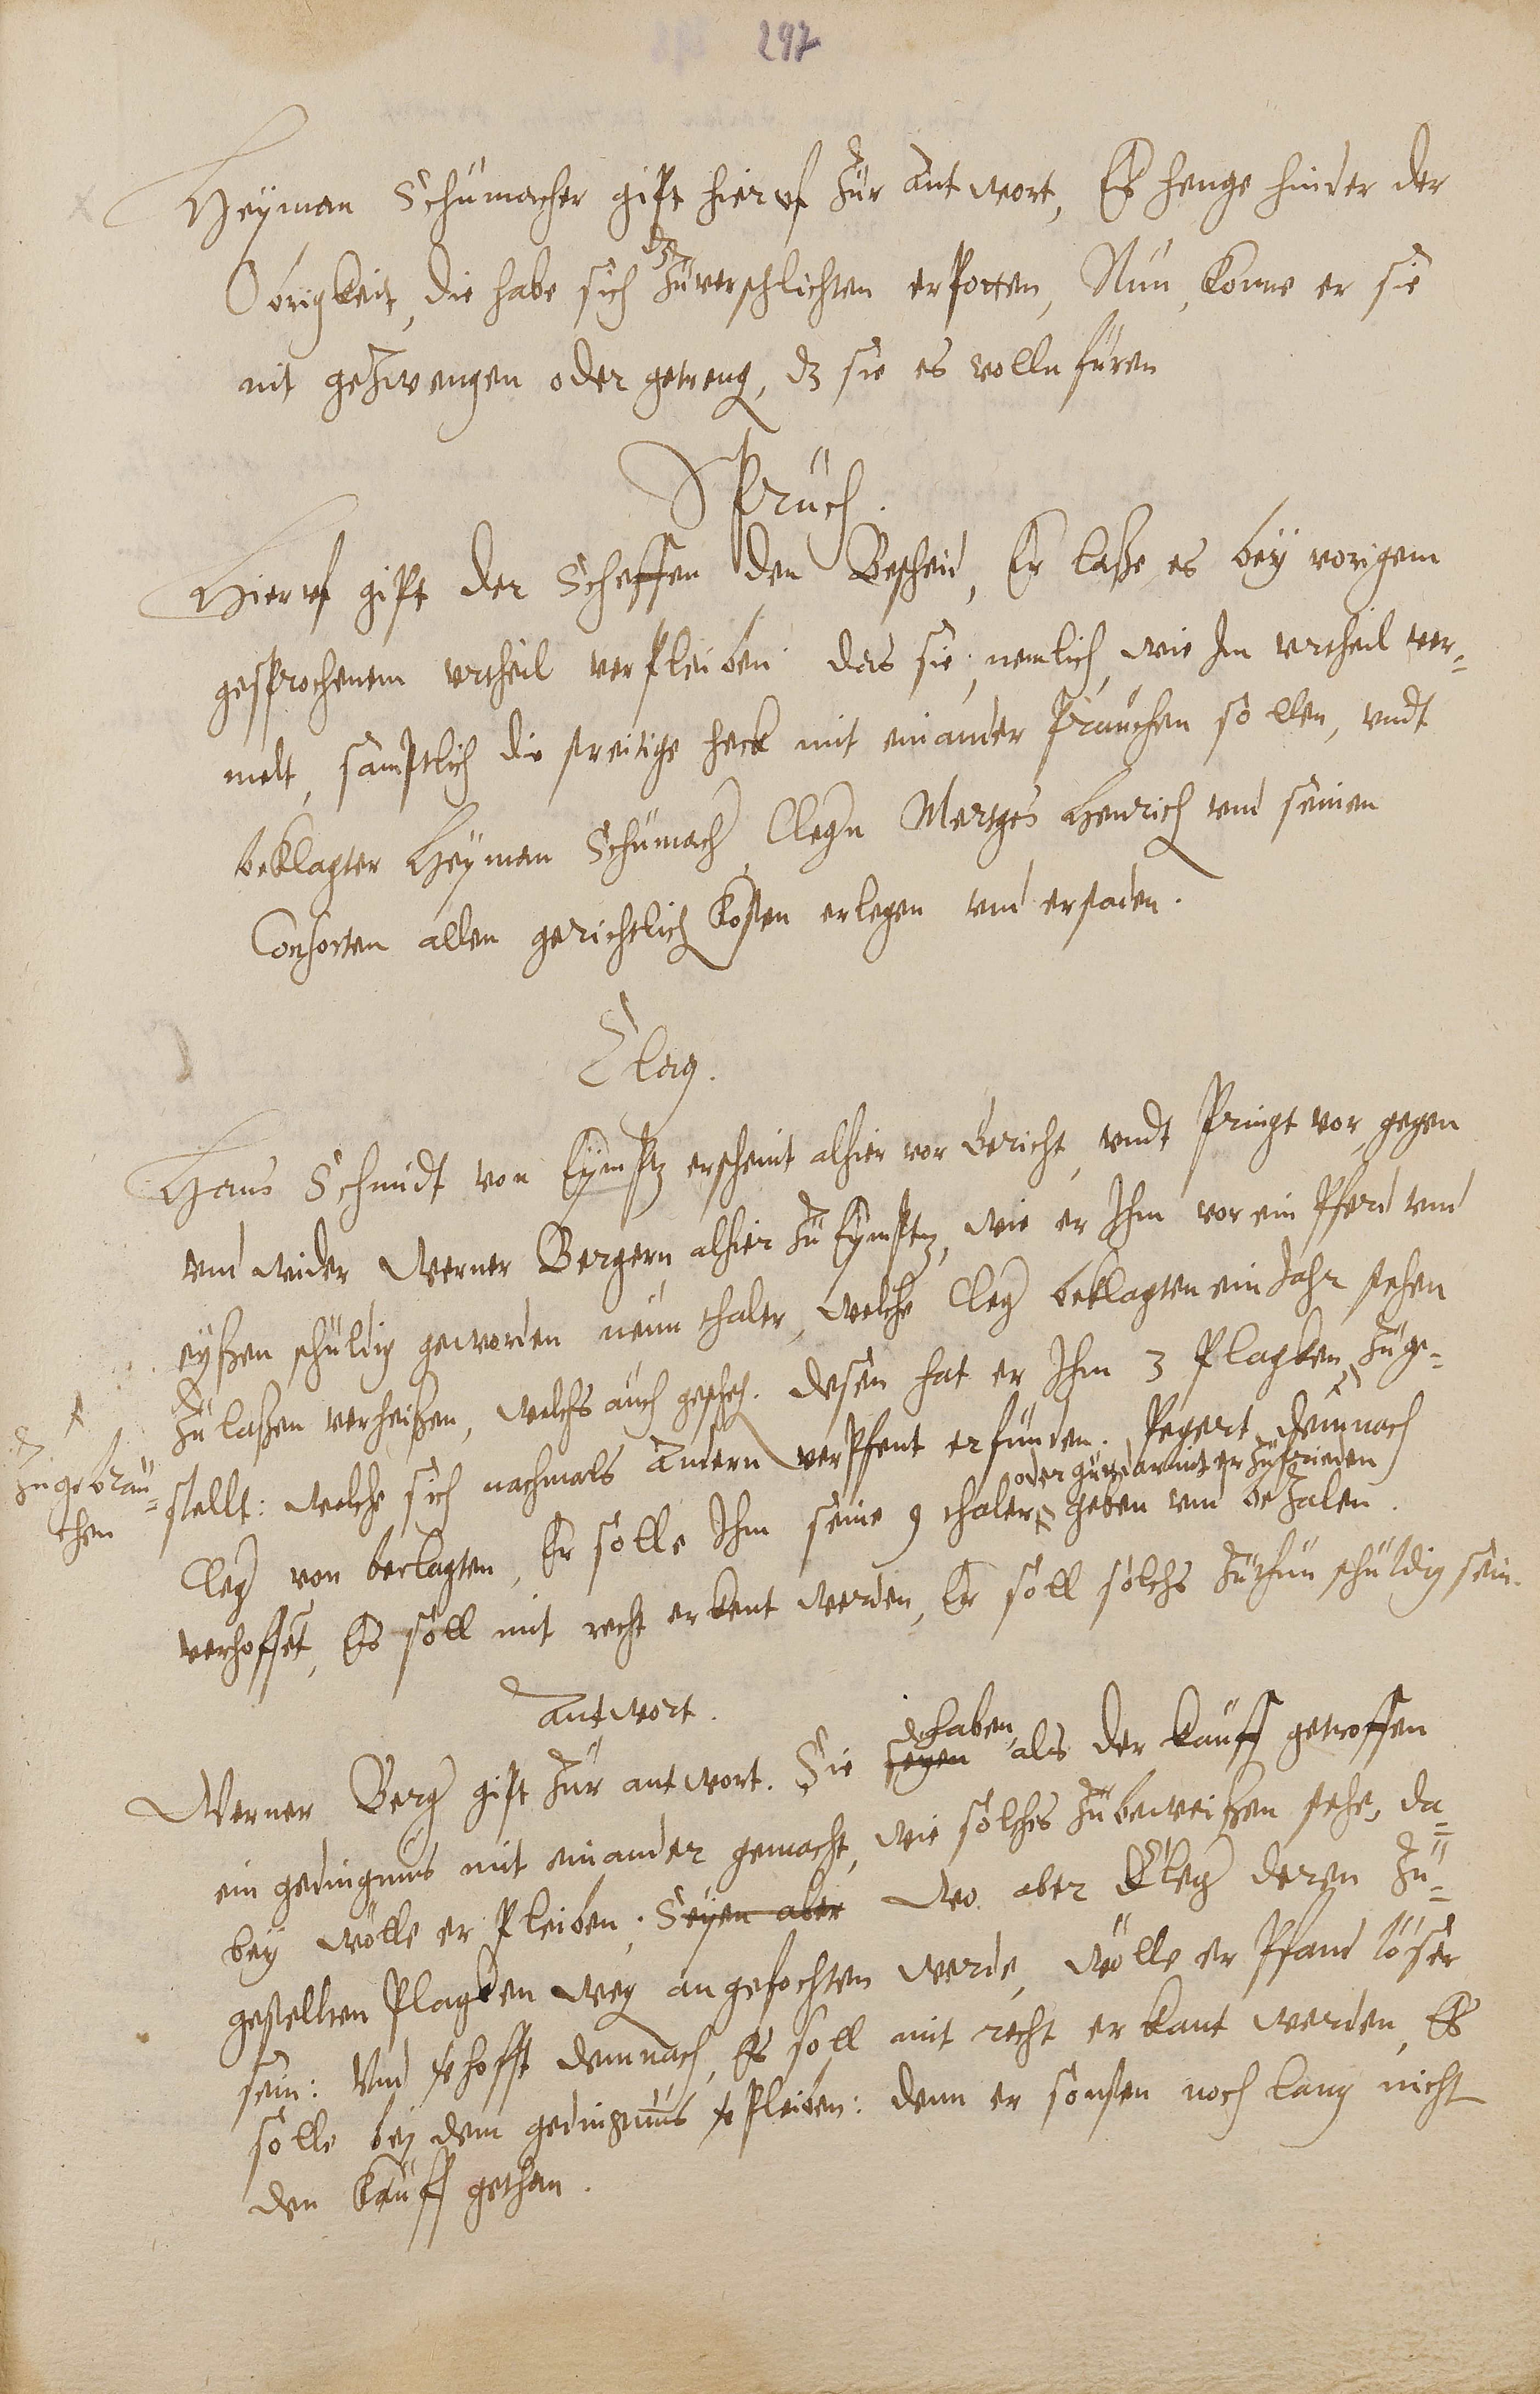 297
Heyman Schumacher gipt hieruf zur antwort, Es henge hinder der
Obrigkeit, die habe sich dz zuverschlichten erpotten, Nun konne er sie
nit gezwengen oder getreng, dz sie es vollnfüren
Spruch.
Hieruf gipt der Scheffen den Bescheid, Er laße es bey vorigem
gesprochenem vrtheil verpleiben das sie, nemlich, wie Im vrtheil ver=
melt, samptlich die streitige heck mit einander prauchen sollen, vndt
beklagter Heyman Schumacher Clegern Mertges Henrich vnd seinen
Consorten allen gerichtlich kosten erlegen vnd erstaden.
Clag.
Hans Schmidt von Eympt erscheint alhier vor Gericht, vndt pringt vor, gegen
vnd wider Werner Bergern alhier zu Eympt, wie er Ihm vor ein Pferd vnd
eyßen schuldig geworden neun thaler, welche Cleg beklagten ein Jahr stehen
zu laßen verheißen, welchs auch gescheh. desen hat er Ihm 3 plagken zuge=
zugebrau=
chen
stellt: welche sich nachmals andern verpfent erfunden. Pegert demnach
oder gut darmit er zufrieden
Cleg von beclagten, Er solle Ihm seine 9 thaler geben vnd bezalen.
verhoffet, Es soll mit recht erkent werden, Er soll solchs zuthun schuldig sein.
Antwort.
haben
Werner Berg gipt zur antwort. Sie seyen als der kauff getroffen
ein gedingnus mit einander gemacht, wie solches zubeweißen stehe, da=
bey wölle er pleiben. Seyen aber wo aber Cleg deren zu=
gestelten plagken weg angefochten werde, wölle er Pfand löser
sein: Vnd hofft demnach, Es soll mit recht erkant werden, Es
solle bey dem gedingnus pleiben: denn er sonsten noch lang nicht
den kauff gethan.